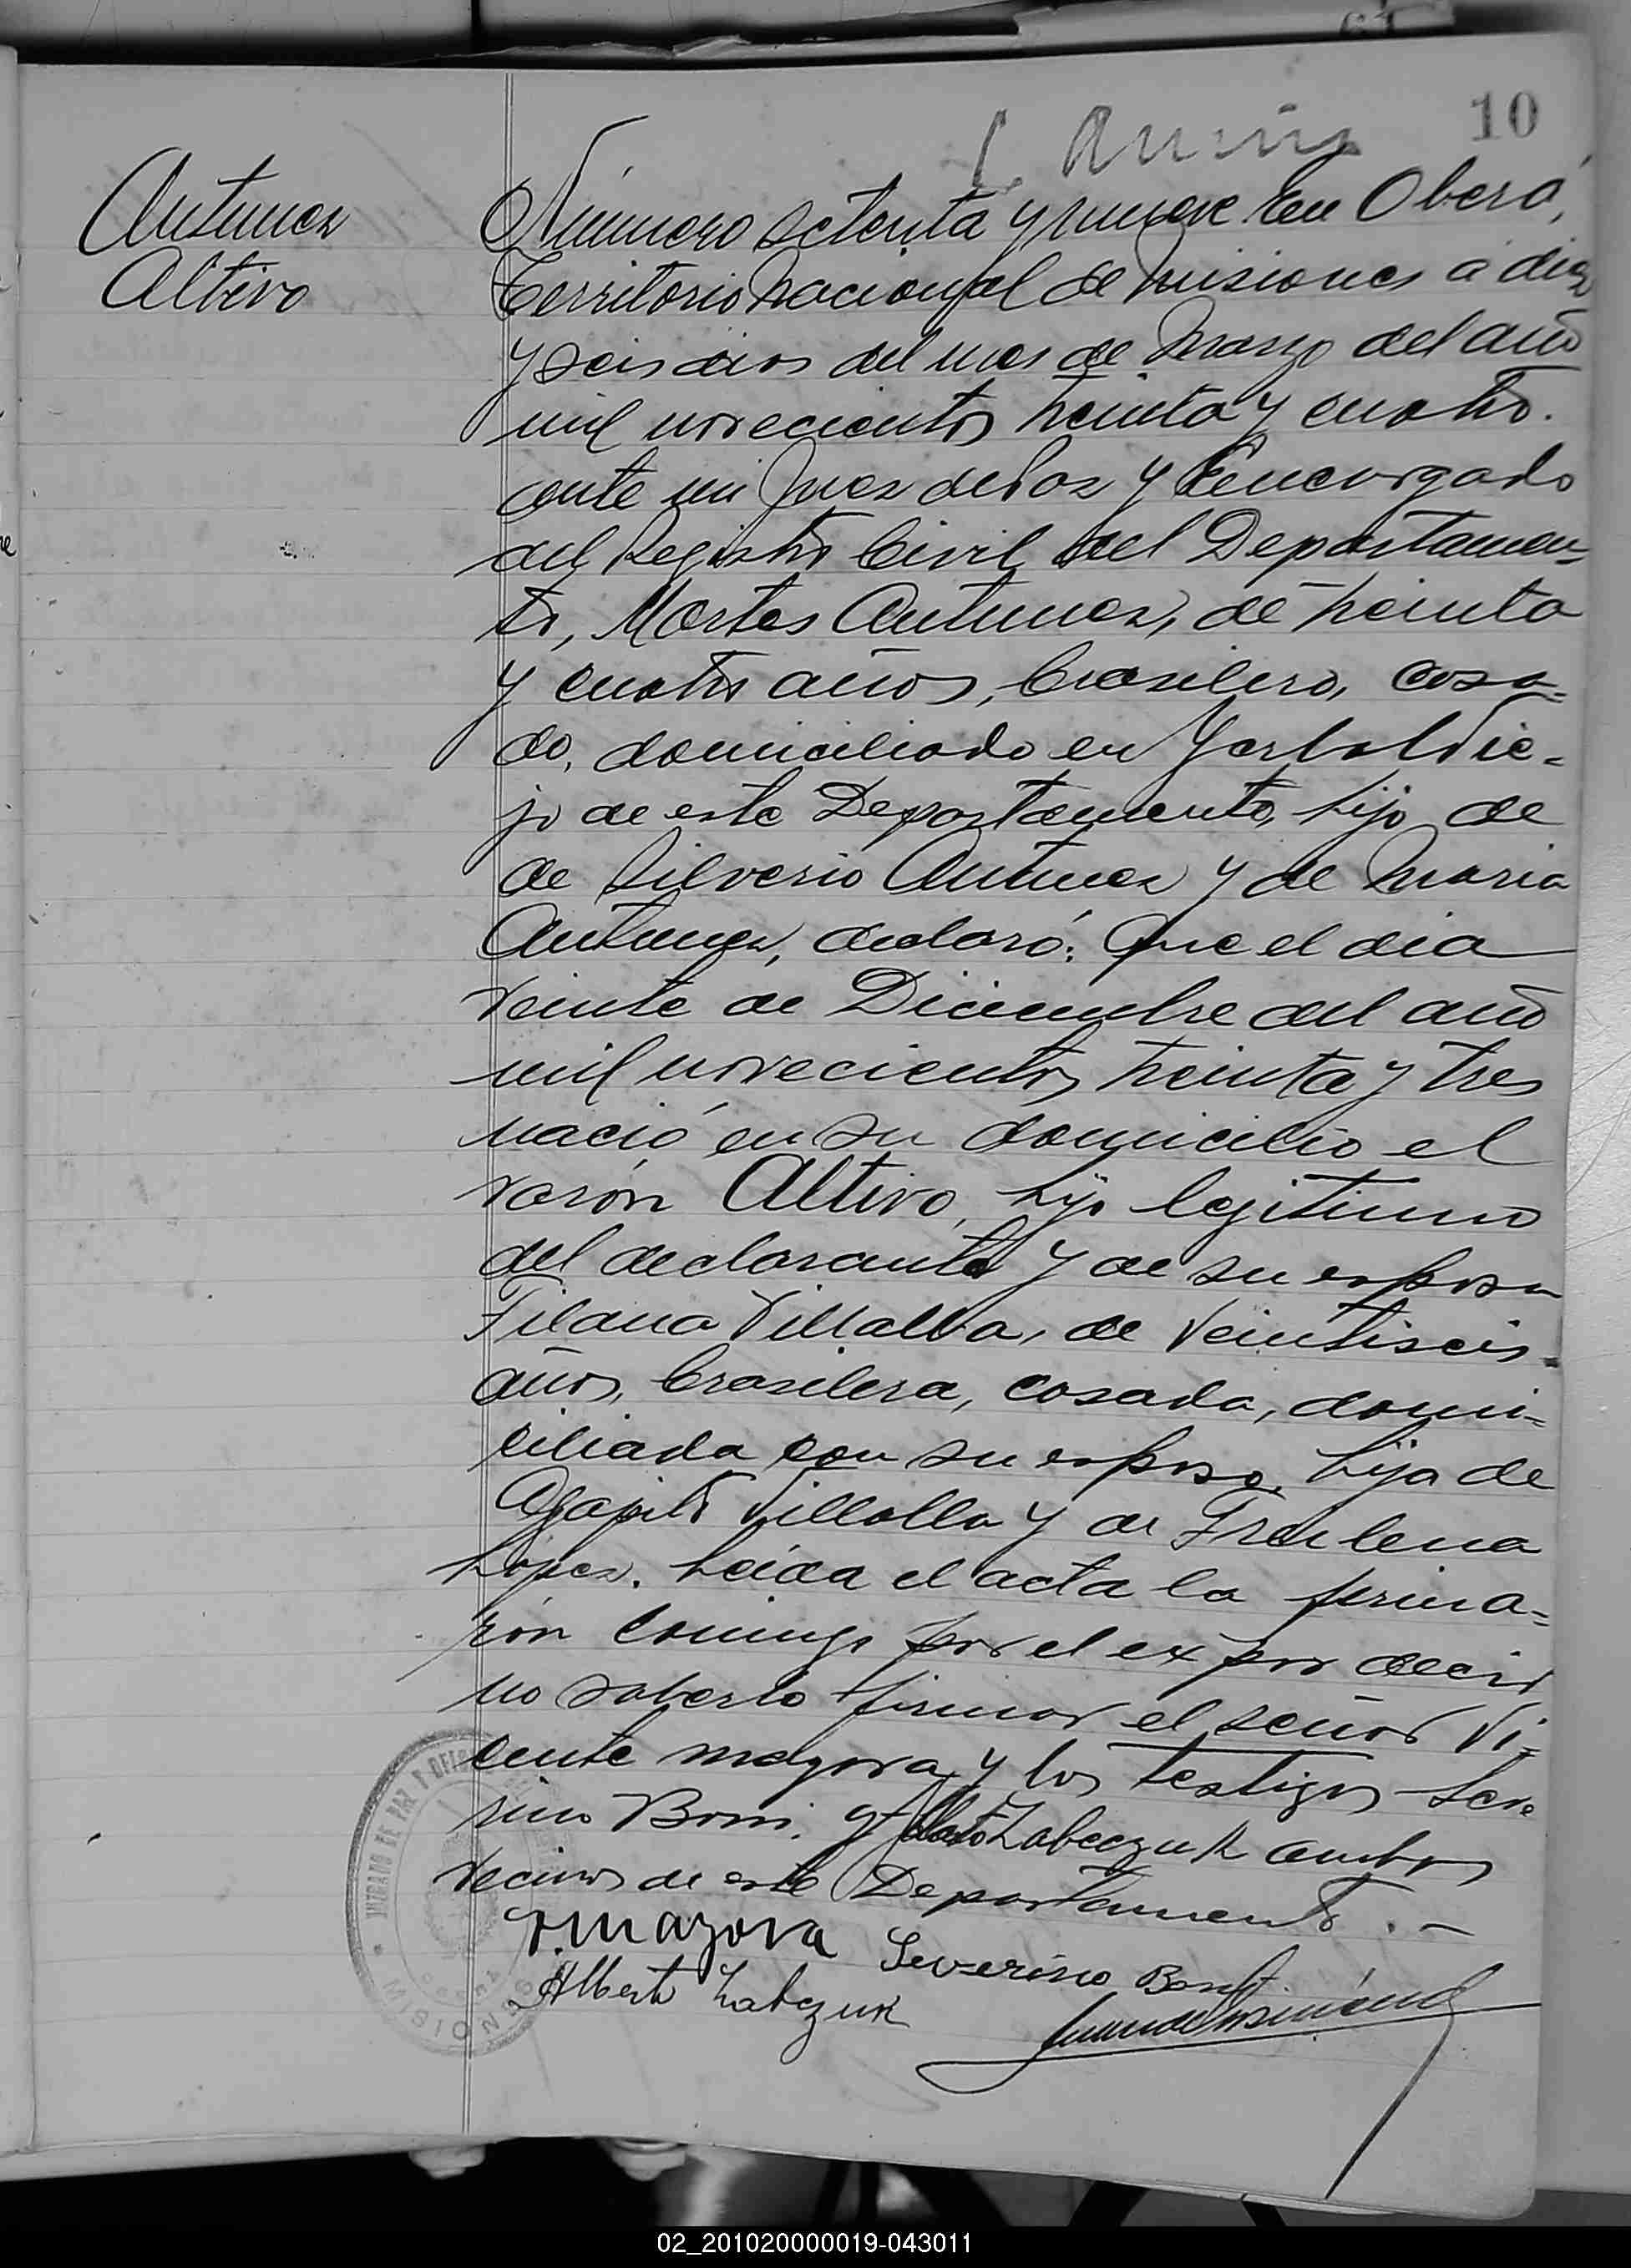 10
Antunez
Altivo
Número setenta y nueve En Oberá,
Territorio Nacional de Misiones a diez
y seis dias del mes de Marzo del año
mil novecientos treinta y cuatro.
ante mi Juez de Paz y Encargado
del Registro Civil del Departamen=
to, Mortes Antunez, de treinta
y cuatro años, brasilero, casa=
do, domiciliado en Yerbal Vie=
jo de este Departamento, hijo de
de Silverio Antunez y de Maria
Antunez, declaró: Que el dia
veinte de Diciembre del año
mil novecientos treinta y tres
nació en su domicilio el
varón Altivo, hijo legitimo
del declarante y de su esposa
Filana Villalba, de veintiseis
años, brasilera, casada, domi=
ciliada con su esposo, hija de
Agapito Villalba y de
López. Leida el acta la firma=
rón conmigo por el ex por decir
no saberlo firmar el señor Vi=
cente Mazora y los testigos Seve
rino Boni. y Zabczuk ambos
vecinos de este Departamento. —
V. Mazora Severino
Alberto Zabczuk
JUZGADO DE PAZ
MISIONES
02_201020000019-043011